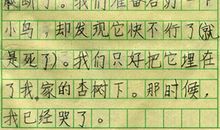 就断了。我们准备给另一下
小鸟,却发现它快不行了(就
是死了)。我们只好把它埋在
了我家的杏树下。那时候,
我已经哭了。